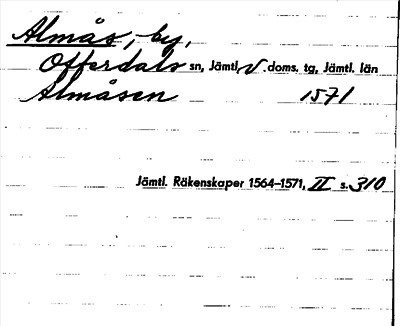 Almås, by,
Offerdals sn, Jämtl. V. doms. tg, Jämtl. län
Almåsen 1571
Jämtl. Räkenskaper 1564–1571, II s. 310